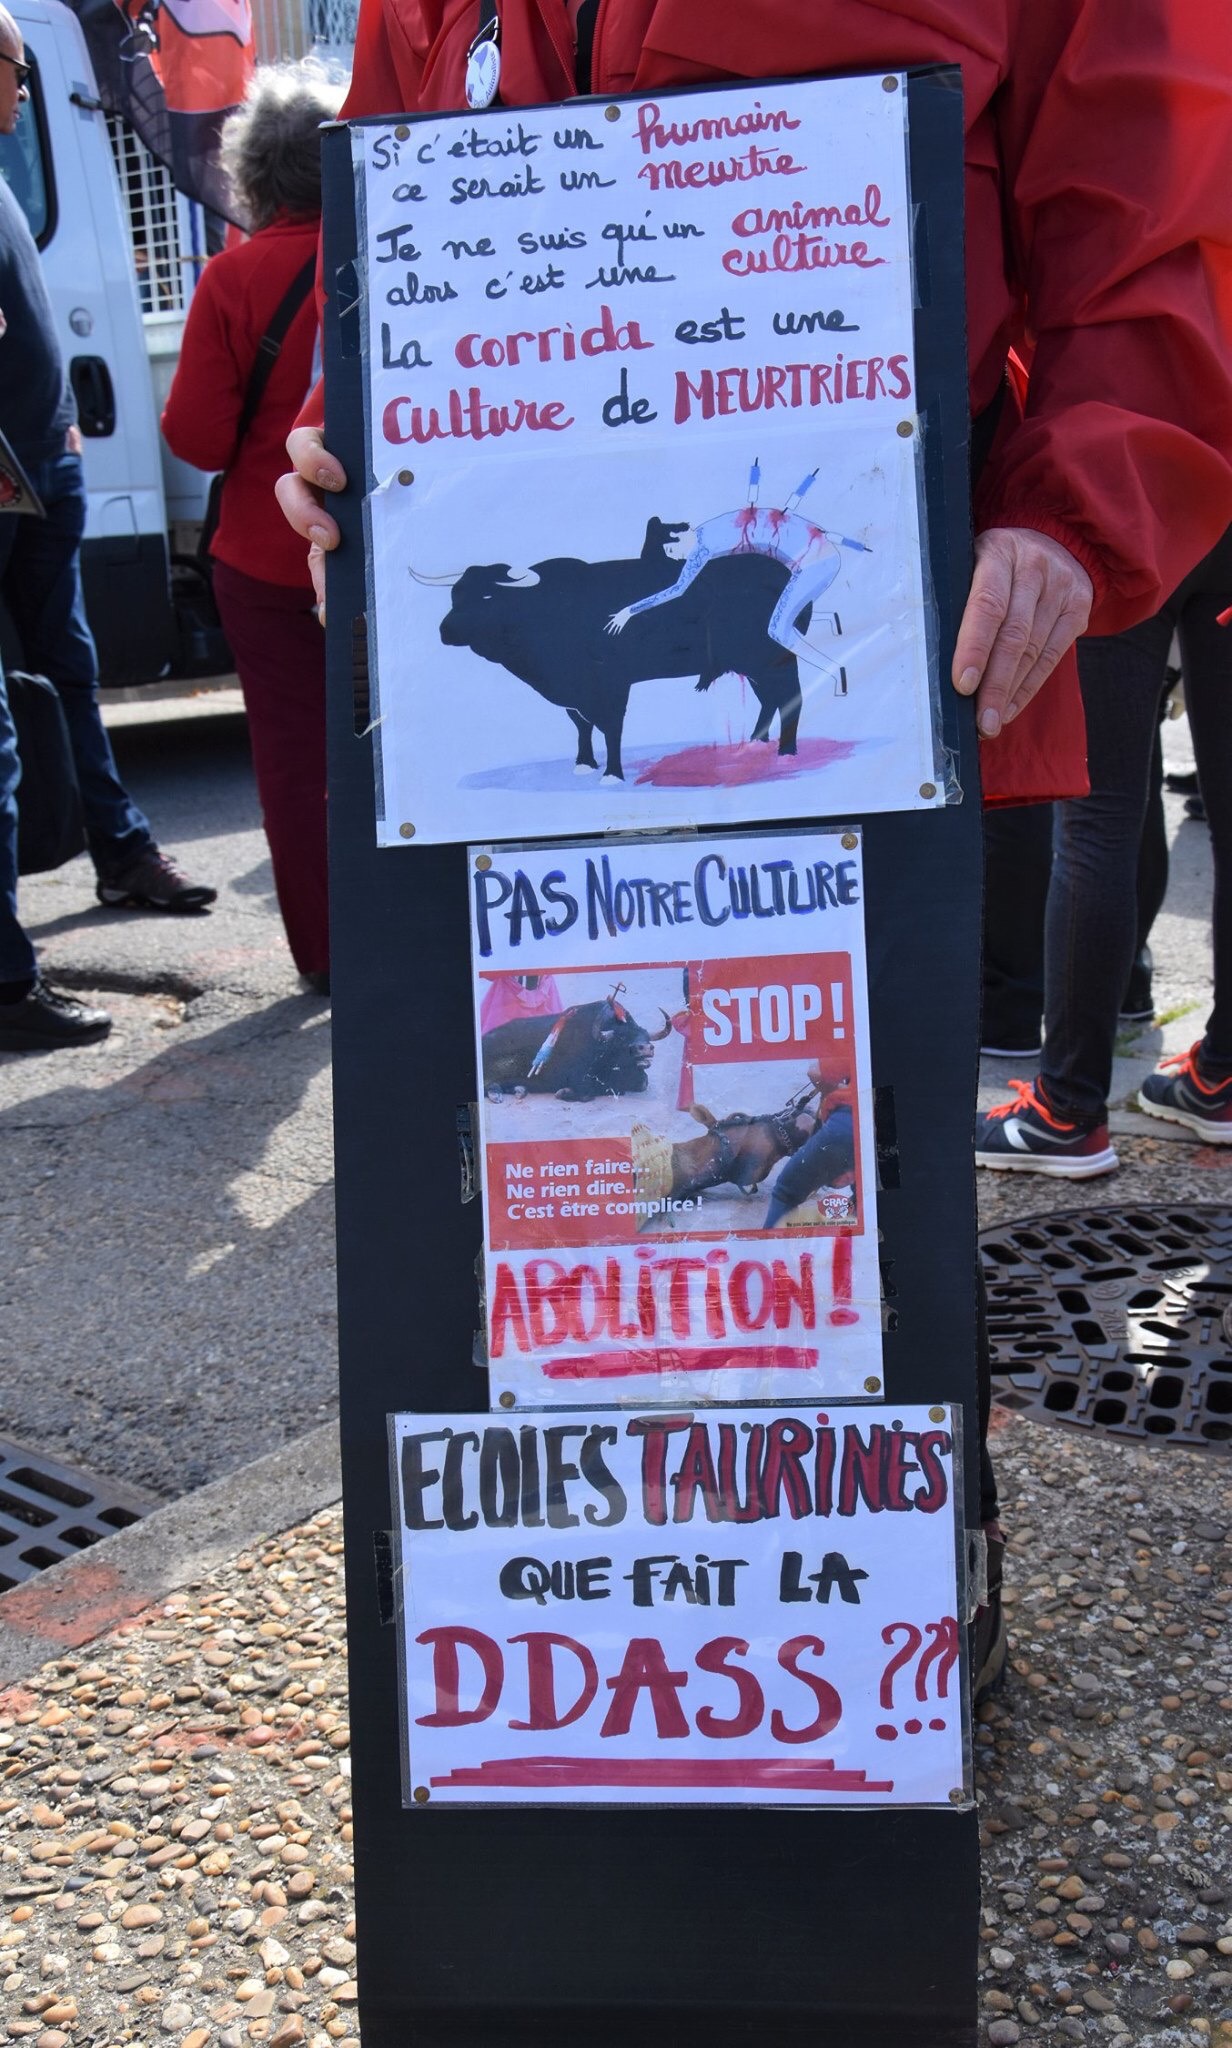 Si c'était un humain
ce serait un meurtre
Je ne suis qu'un animal
alors c'est une culture
La corrida est une
Culture de MEURTRIERS
PAS NOTRE CULTURE
STOP !
Ne rien faire...
Ne rien dire...
C'est être complice !
CRAC
ABOLITION !
ECOLES TAURINES
QUE FAIT LA
DDASS ???